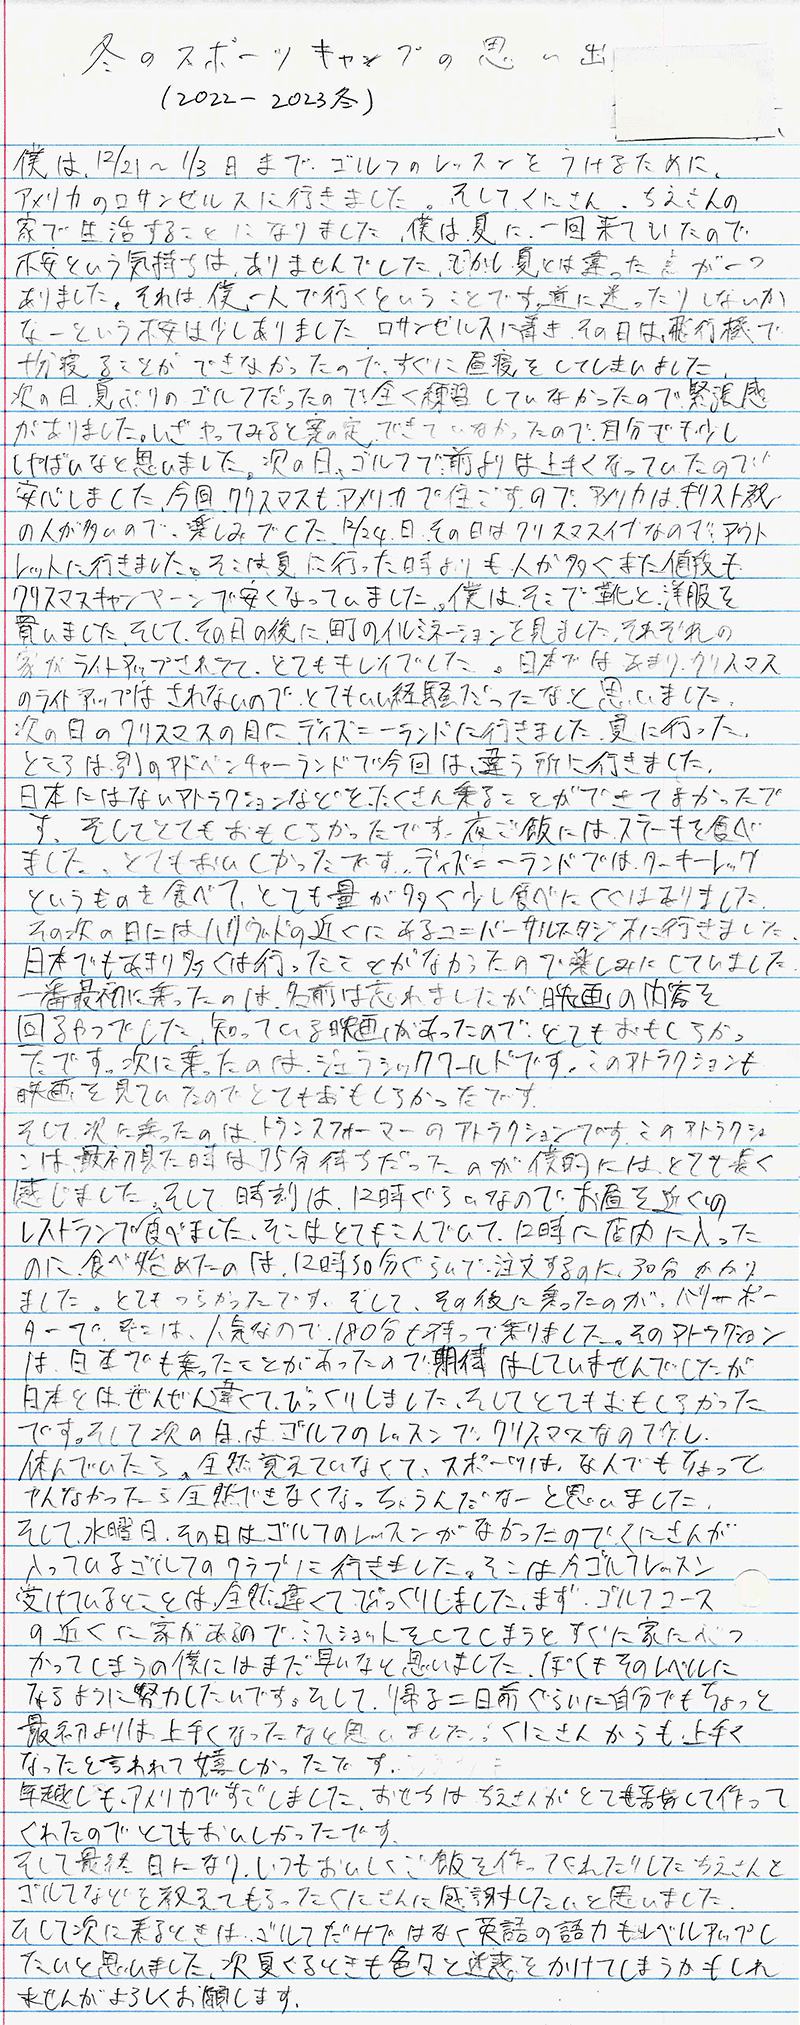 冬のスポーツキャンプの思い出
(2022-2023冬)
僕は、12/21〜1/3日まで、ゴルフのレッスンをうけるために、
アメリカのロサンゼルスに行きました。そしてくにさん、ちえさんの
家で生活することになりました。僕は夏に、一回来ていたので
不安という気持ちは、ありませんでした。しかし夏とは違った点が一つ
ありました。それは、僕一人で行くということです。道に迷ったりしないか
なーという不安は少しありました ロサンゼルスに着き、その日は、飛行機で
十分寝ることができなかったので、すぐに昼寝をしてしまいました。
次の日、夏ぶりのゴルフだったので全く練習していなかったので緊張感
がありました。いざやってみると案の定、できていなかったので、自分でも少し
しょぼいなと思いました。次の日、ゴルフで前よりは上手くなっていたので
安心しました。今回クリスマスもアメリカで住ごすので、アメリカは、キリスト教
の人が多いので、楽しみでした。12/24日、その日はクリスマスイブなので、アウト
レットに行きました。そこは夏に行った時よりも人が多くまた値段も
クリスマスキャンペーンで安くなっていました。僕は、そこで靴と、洋服を
買いました。そして、その日の後に、町のイルミネーションを見ました。それぞれの
家がライトアップされてて、とてもキレイでした。日本ではあまり、クリスマス
のライトアップはされないので、とてもいい経験だったなと思いました。
次の日のクリスマスの日に、ディズニーランドに行きました。夏に行った、
ところは、別のアドベンチャーランドで今回は、違う所に行きました。
日本にはないアトラクションなどを、たくさん乗ることができてよかったで
す。そしてとてもおもしろかったです。夜ご飯には、ステーキを食べ
ました。とてもおいしかったです。ディズニーランドでは、ターキーレッグ
というものを食べて、とても量が多く少し食べにくくはありました。
その次の日にはハリウッドの近くにあるユニバーサルスタジオに行きました。
日本でもあまり多くは行ったことがなかったので楽しみにしていました。
一番最初に乗ったのは、名前は忘れましたが映画の内容を
回るやつでした。知っている映画があったので、とてもおもしろかっ
たです。次に乗ったのは、ジュラシックワールドです。このアトラクションも
映画を見ていたのでとてもおもしろかったです。
そして、次に乗ったのは、トランスフォーマーのアトラクションです。このアトラクショ
ンは、最初見た時は75分待ちだったのが僕的には、とても長く
感じました。そして 時刻は、12時ぐらいなので、お昼を近くの
レストランで食べました。そこはとてもこんでいて、12時に店内に入った
のに、食べ始めたのは、12時50分ぐらいで、注文するのに、30分かかり
ました。とてもつらかったです。そして、その後に乗ったのが、ハリーポー
ターで、そこは、人気なので、180分も待って乗りました。そのアトラクション
は、日本でも乗ったことがあったので、期待はしていませんでしたが
日本とは、ぜんぜん違くて、びっくりしました。そしてとてもおもしろかった
です。そして次の日は、ゴルフのレッスンで、クリスマスなので少し、
休んでいたら、全然覚えていなくて、スポーツは、なんでもちょっと
やんなかったら全然できなくなっちゃうんだなーと思いました。
そして、水曜日、その日はゴルフのレッスンがなかったので、くにさんが
入っているゴルフのクラブに行きました。そこは今ゴルフレッスン
受けているところとは、全然違くてびっくりしました。まず、ゴルフコース
の近くに家があるので、ミスショットをしてしまうとすぐに家にぶつ
かってしまうの僕にはまだ早いなと思いました。ぼくもそのレベルに
なるように努力したいです。そして、帰る二日前ぐらいに自分でもちょっと
最初よりは上手くなったなと思いました。くにさんからも、上手く
なったと言われて嬉しかったです。
年越しも、アメリカですごしました。おせちはちえさんがとても苦労して作って
くれたのでとてもおいしかったです。
そして最終日になり、いつもおいしくご飯を作ってくれたりしたちえさんと
ゴルフなどを教えてもらったくにさんに感謝したいと思いました。
そして次に来るときは、ゴルフだけではなく英語の語力もレベルアップし
たいと思いました。次夏くるときも色々と迷惑をかけてしまうかもしれ
ませんがよろしくお願します。